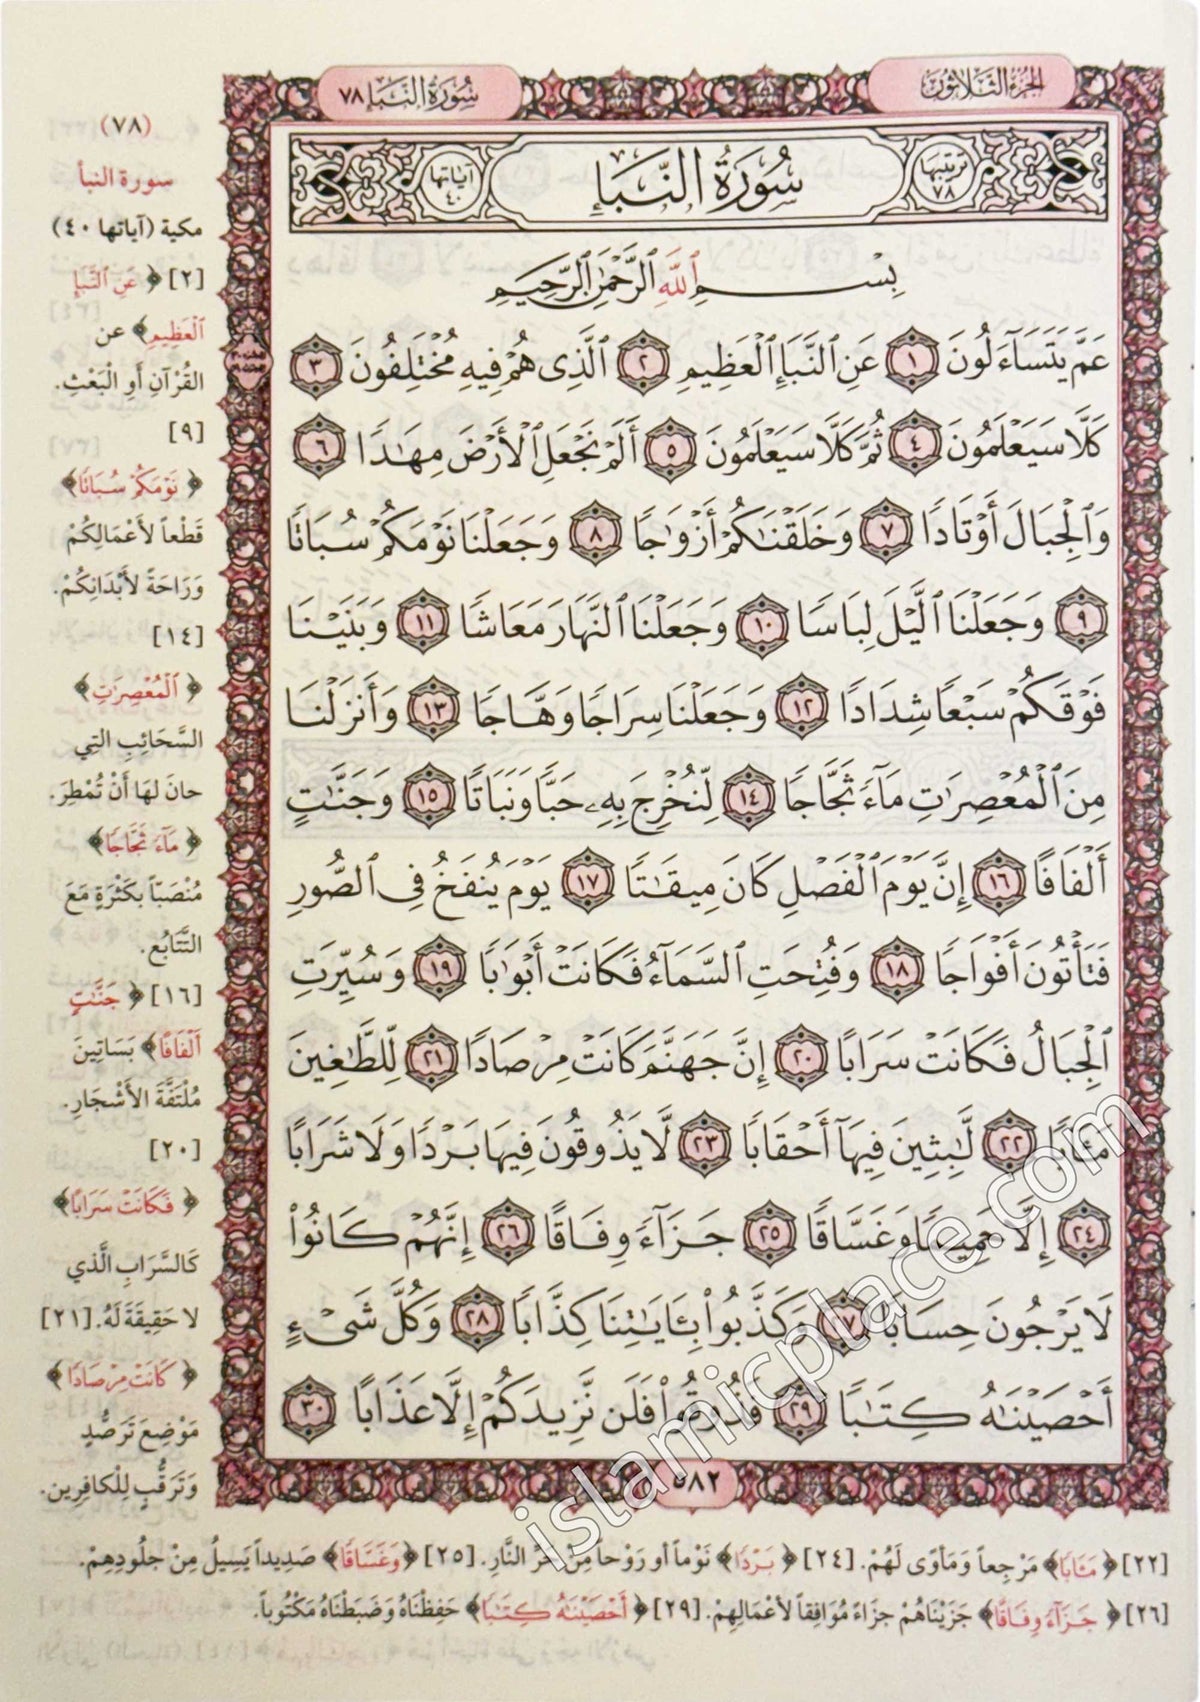 الجزء الثلاثون
سورة النبإ ٧٨
ترتيبها ٧٨
سُورَةُ النَّبَإِ
آياتها ٤٠
بِسْمِ ٱللَّهِ ٱلرَّحْمَٰنِ ٱلرَّحِيمِ
عَمَّ يَتَسَآءَلُونَ ١ عَنِ ٱلنَّبَإِ ٱلْعَظِيمِ ٢ ٱلَّذِى هُمْ فِيهِ مُخْتَلِفُونَ ٣
كَلَّا سَيَعْلَمُونَ ٤ ثُمَّ كَلَّا سَيَعْلَمُونَ ٥ أَلَمْ نَجْعَلِ ٱلْأَرْضَ مِهَٰدًا ٦
وَٱلْجِبَالَ أَوْتَادًا ٧ وَخَلَقْنَٰكُمْ أَزْوَٰجًا ٨ وَجَعَلْنَا نَوْمَكُمْ سُبَاتًا
٩ وَجَعَلْنَا ٱلَّيْلَ لِبَاسًا ١٠ وَجَعَلْنَا ٱلنَّهَارَ مَعَاشًا ١١ وَبَنَيْنَا
فَوْقَكُمْ سَبْعًا شِدَادًا ١٢ وَجَعَلْنَا سِرَاجًا وَهَّاجًا ١٣ وَأَنزَلْنَا
مِنَ ٱلْمُعْصِرَٰتِ مَآءً ثَجَّاجًا ١٤ لِّنُخْرِجَ بِهِۦ حَبًّا وَنَبَاتًا ١٥ وَجَنَّٰتٍ
أَلْفَافًا ١٦ إِنَّ يَوْمَ ٱلْفَصْلِ كَانَ مِيقَٰتًا ١٧ يَوْمَ يُنفَخُ فِى ٱلصُّورِ
فَتَأْتُونَ أَفْوَاجًا ١٨ وَفُتِحَتِ ٱلسَّمَآءُ فَكَانَتْ أَبْوَٰبًا ١٩ وَسُيِّرَتِ
ٱلْجِبَالُ فَكَانَتْ سَرَابًا ٢٠ إِنَّ جَهَنَّمَ كَانَتْ مِرْصَادًا ٢١ لِّلطَّٰغِينَ
مَـَٔابًا ٢٢ لَّٰبِثِينَ فِيهَآ أَحْقَابًا ٢٣ لَّا يَذُوقُونَ فِيهَا بَرْدًا وَلَا شَرَابًا
٢٤ إِلَّا حَمِيمًا وَغَسَّاقًا ٢٥ جَزَآءً وِفَاقًا ٢٦ إِنَّهُمْ كَانُوا۟
لَا يَرْجُونَ حِسَابًا ٢٧ وَكَذَّبُوا۟ بِـَٔايَٰتِنَا كِذَّابًا ٢٨ وَكُلَّ شَىْءٍ
أَحْصَيْنَٰهُ كِتَٰبًا ٢٩ فَذُوقُوا۟ فَلَن نَّزِيدَكُمْ إِلَّا عَذَابًا ٣٠
٥٨٢
(٧٨)
سورة النبأ
مكية (آياتها ٤٠)
[٢] ﴿عَنِ ٱلنَّبَإِ
ٱلْعَظِيمِ﴾ عن
القُرْآنِ أَوِ الْبَعْثِ.
[٩]
﴿نَوْمَكُمْ سُبَاتًا﴾
قَطْعاً لأَعْمَالِكُمْ
وَرَاحَةً لأَبْدَانِكُمْ.
[١٤]
﴿ٱلْمُعْصِرَٰتِ﴾
السَّحَائِبِ التِي
حانَ لهَا أَنْ تُمْطِرَ.
﴿مَآءً ثَجَّاجًا﴾
مُنْصَبّاً بِكَثْرَةٍ مَعَ
التَّتَابُعِ.
[١٦] ﴿جَنَّٰتٍ
أَلْفَافًا﴾ بَسَاتِينَ
مُلْتَفَّةَ الأَشْجَارِ.
[٢٠]
﴿فَكَانَتْ سَرَابًا﴾
كَالسَّرَابِ الَّذي
لا حَقِيقَةَ لَهُ. [٢١]
﴿كَانَتْ مِرْصَادًا﴾
مَوْضِعَ تَرَصُّدٍ
وَتَرَقُّبٍ لِلْكَافِرِين.
[٢٢] ﴿مَـَٔابًا﴾ مَرْجِعاً وَمَأوًى لَهُمْ. [٢٤] ﴿بَرْدًا﴾ نَوْماً أو رَوْحاً مِنْ حَرِّ النَّارِ. [٢٥] ﴿وَغَسَّاقًا﴾ صَدِيداً يَسِيلُ مِنْ جلُودِهِمْ.
[٢٦] ﴿جَزَآءً وِفَاقًا﴾ جَزَيْنَاهُمْ جَزَاءً مُوَافِقاً لأعْمَالِهِمْ. [٢٩] ﴿أَحْصَيْنَٰهُ كِتَٰبًا﴾ حَفِظْنَاهُ وَضَبَطْنَاهُ مَكْتُوباً.
islamicplace.com